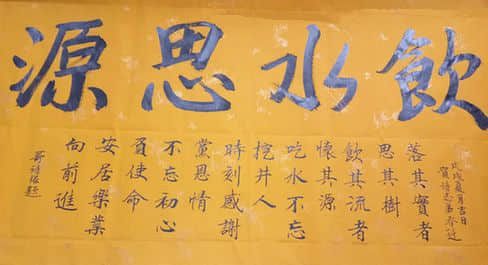 飲水思源
戊戌夏月吉日
落其實者
思其樹
飲其流者
懷其源
吃水不忘
挖井人
時刻感謝
黨恩情
不忘初心
負使命
安居樂業
向前進